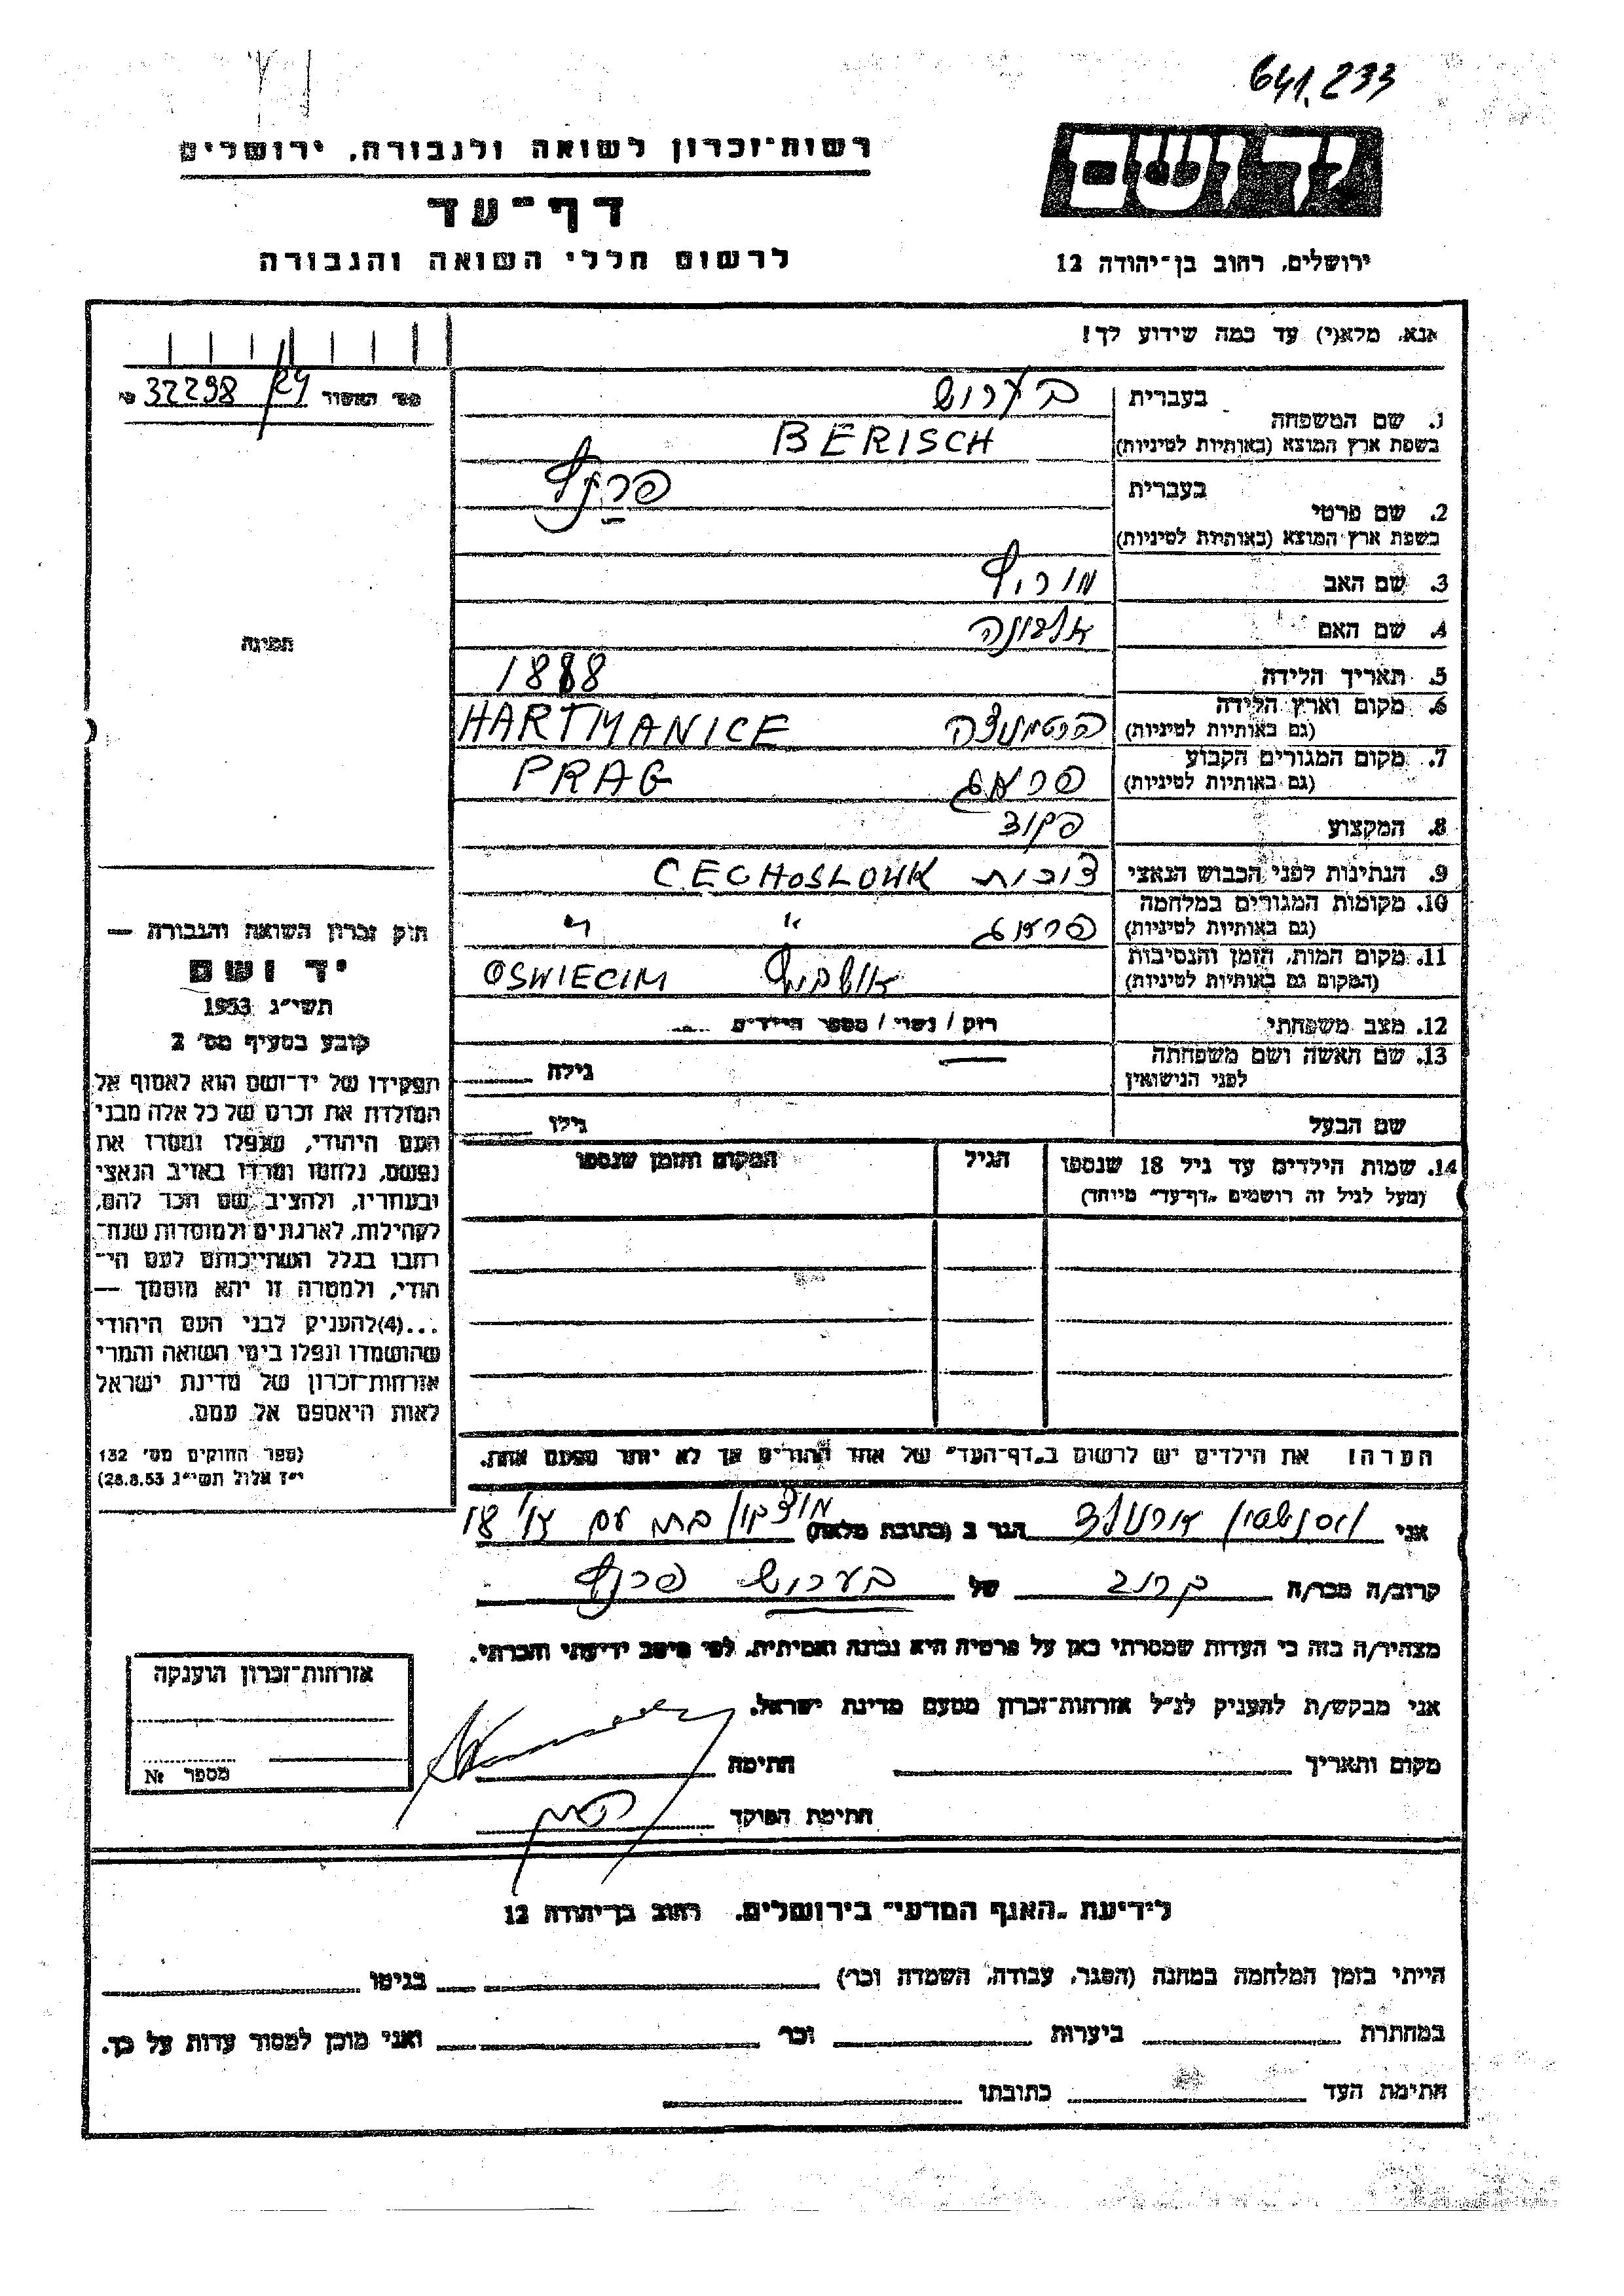 641,233
יד ושם
רשות־זכרון לשואה ולגבורה, ירושלים
דף־עד
לרשום חללי השואה והגבורה
ירושלים, רחוב בן־יהודה 12
אנא, מלא(י) עד כמה שידוע לך!
32298/24
1. שם המשפחה
בעברית
בעריש
בשפת ארץ המוצא (באותיות לטיניות)
BERISCH
2. שם פרטי
בעברית
פרנץ
בשפת ארץ המוצא (באותיות לטיניות)
3. שם האב
מוריץ
4. שם האם
5. תאריך הלידה
1888
6. מקום וארץ הלידה
(גם באותיות לטיניות)
הרטמניצה HARTMANICE
7. מקום המגורים הקבוע
(גם באותיות לטיניות)
פראג PRAG
8. המקצוע
פקיד
9. הנתינות לפני הכבוש הנאצי
צ'כית CECHOSLOWK
10. מקומות המגורים במלחמה
(גם באותיות לטיניות)
פראג " "
11. מקום המות, הזמן והנסיבות
(המקום גם באותיות לטיניות)
אושביץ OSWIECIM
12. מצב משפחתי
רוק / נשוי / מספר הילדים
13. שם האשה ושם משפחתה
לפני הנישואין
גילה
שם הבעל
גילו
14. שמות הילדים עד גיל 18 שנספו
(מעל לגיל זה רושמים „דף־עד" מיוחד)
הגיל
המקום והזמן שנספו
הערה: את הילדים יש לרשום ב„דף־העד" של אחד ההורים אך לא יותר מפעם אחת.
תמונה
חוק זכרון השואה והגבורה —
יד ושם
תשי"ג 1953
קובע בסעיף מס' 2
תפקידו של יד־ושם הוא לאסוף אל
המולדת את זכרם של כל אלה מבני
העם היהודי, שנפלו ומסרו את
נפשם, נלחמו ומרדו באויב הנאצי
ובעוזריו, ולהציב שם וזכר להם,
לקהילות, לארגונים ולמוסדות שנח־
רבו בגלל השתייכותם לעם הי־
הודי, ולמטרה זו יהא מוסמך —
...(4)להעניק לבני העם היהודי
שהושמדו ונפלו בימי השואה והמרי
אזרחות־זכרון של מדינת ישראל
לאות היאספם אל עמם.
(ספר החוקים מס' 132
י"ז אלול תשי"ג 28.8.53)
אני ארנולד הגר ב (כתובת מלאה) מוצקין 18
קרוב/ה מכר/ה קרוב של בעריש פרנץ
מצהיר/ה בזה כי העדות שמסרתי כאן על פרטיה היא נכונה ואמיתית, לפי מיטב ידיעתי והכרתי.
אני מבקש/ת להעניק לנ"ל אזרחות־זכרון מטעם מדינת ישראל.
מקום ותאריך חתימה
חתימת הפוקד
אזרחות־זכרון הוענקה
מספר №
לידיעת „האגף המדעי" בירושלים, רחוב בן־יהודה 12
הייתי בזמן המלחמה במחנה (הסגר, עבודה, השמדה וכר') בגיטו
במחתרת ביערות וכר' ואני מוכן למסור עדות על כך.
חתימת העד כתובתו